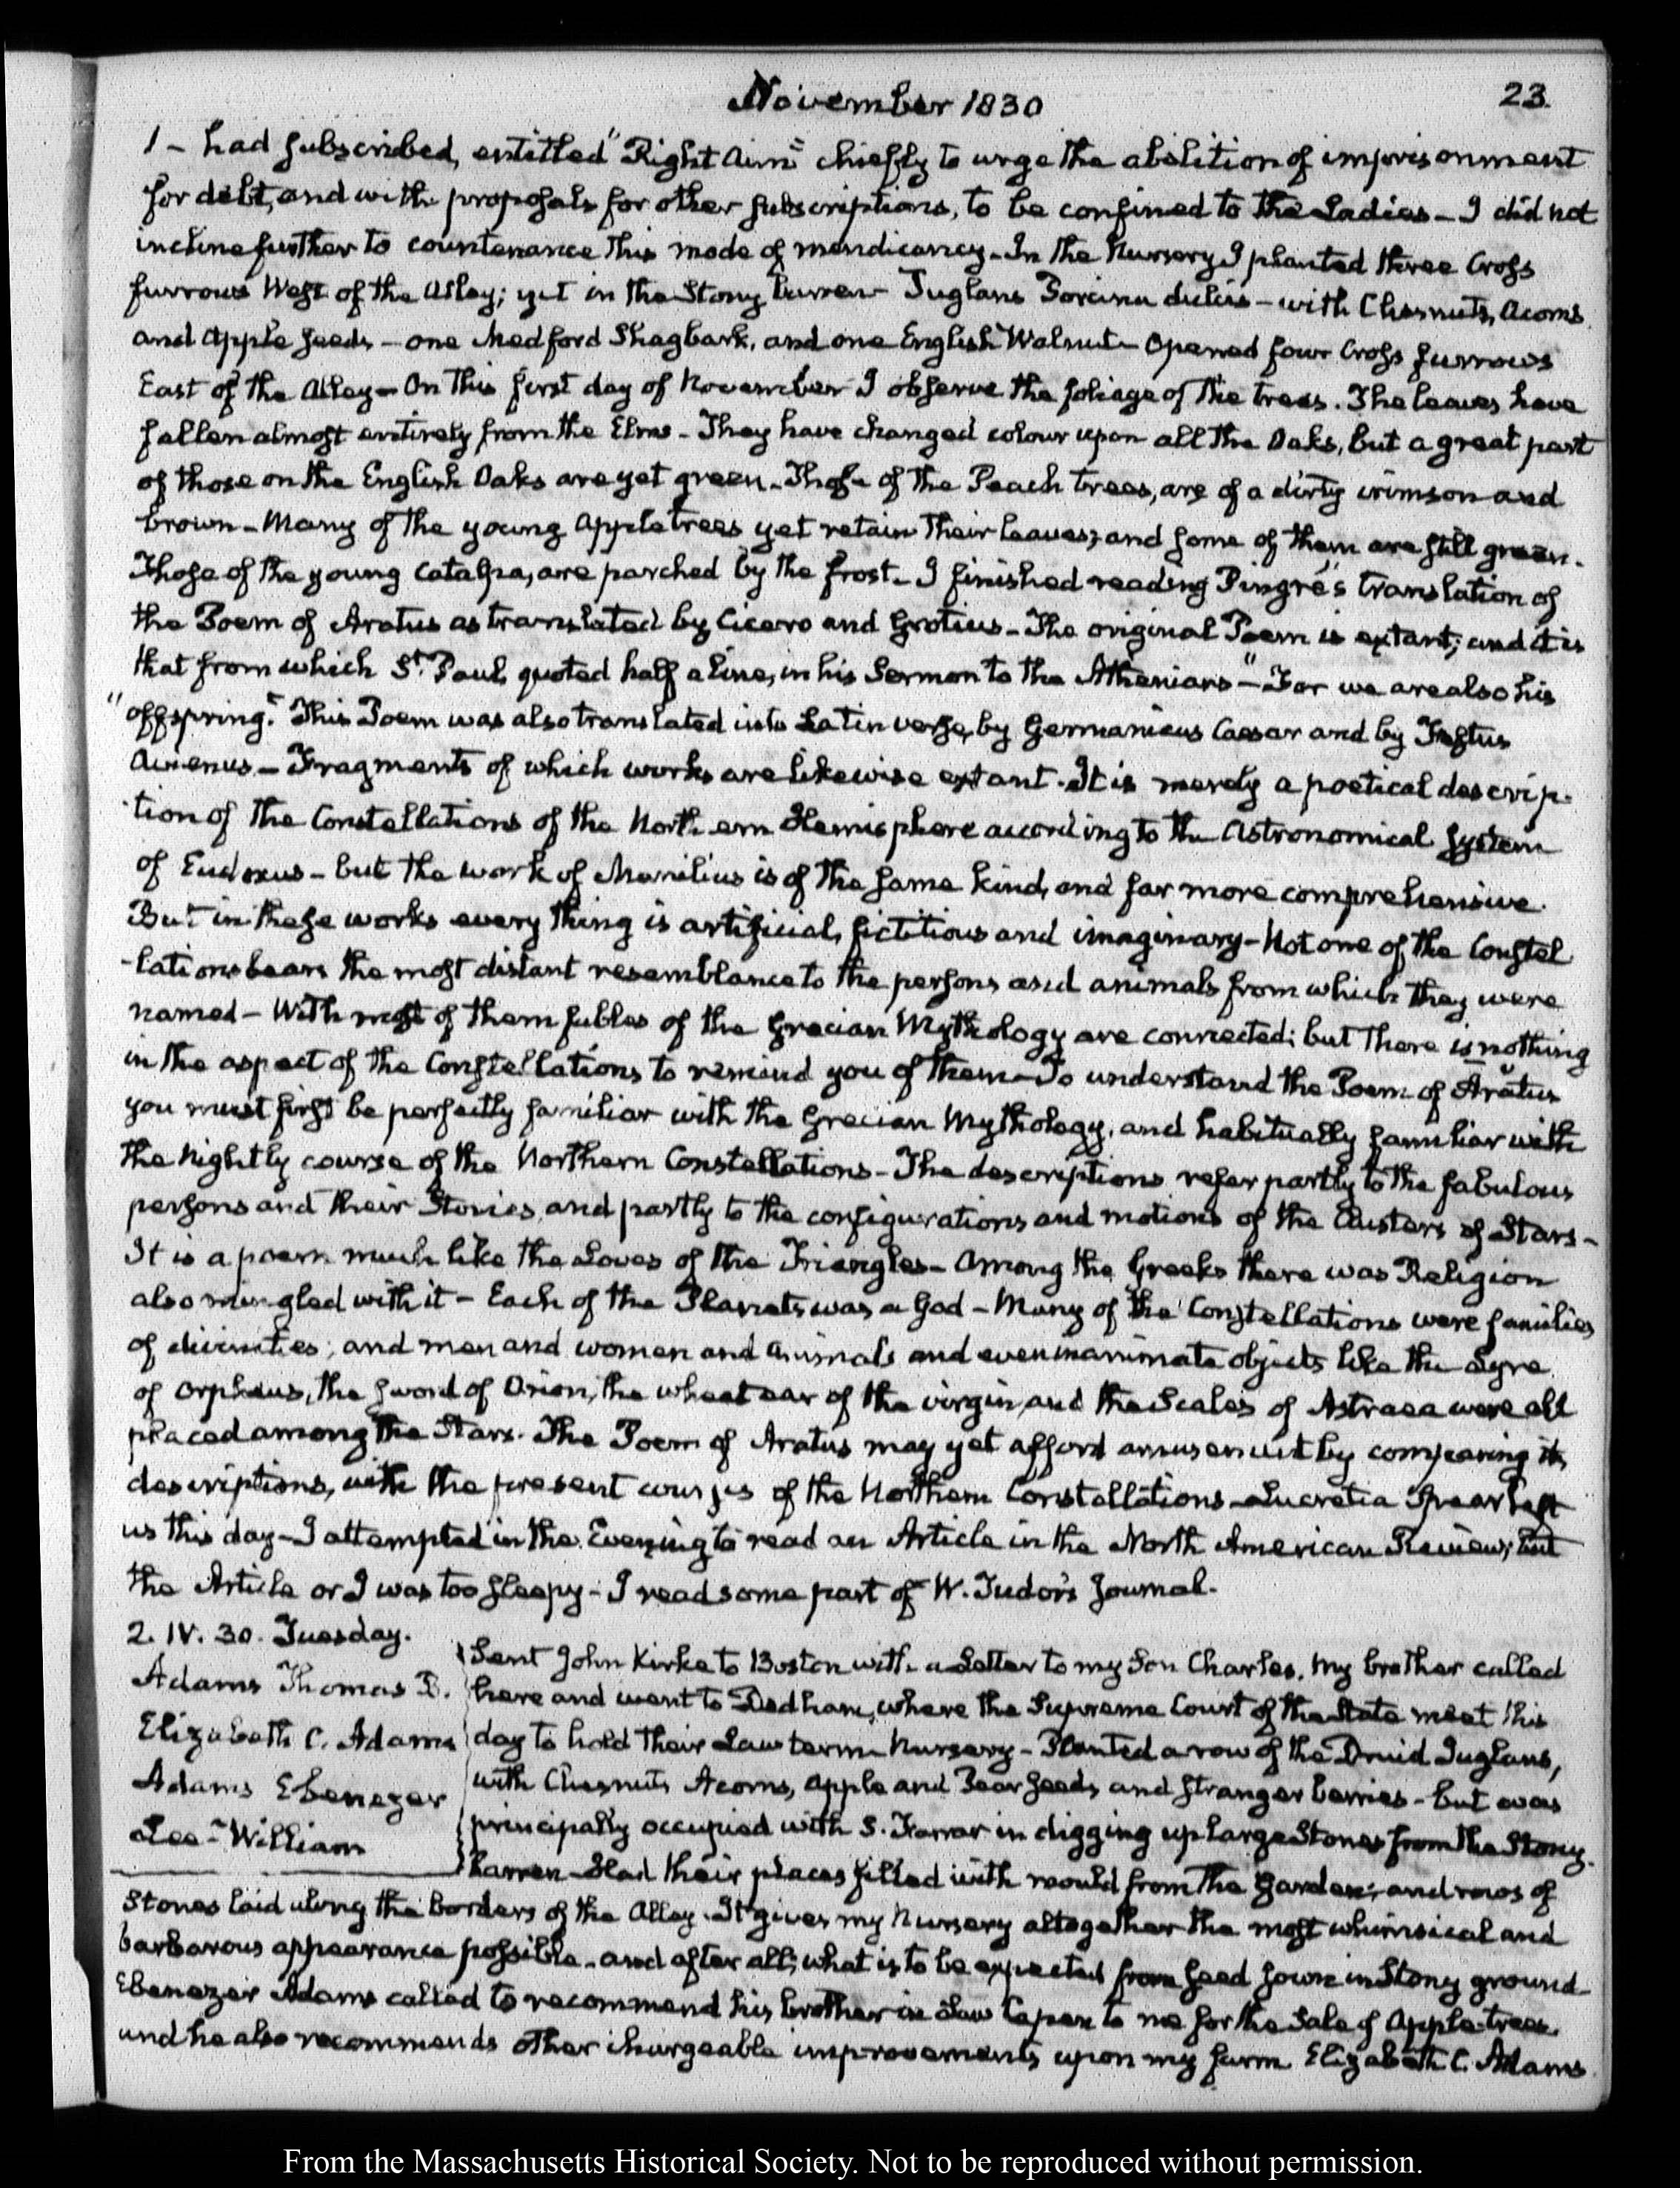 November 1830
23.
1 - had subscribed, entitled "Right Aim" chiefly to urge the abolition of imprisonment
for debt, and with proposals for other subscriptions, to be confined to the Ladies - I did not
incline further to countenance this mode of mendicancy - In the Nursery I planted three Cross
furrows West of the Alley; yet in the Stony barren Juglans Porcina dulcis - with Chesnuts, Acorns
and Apple seeds - one Medford Shagbark, and one English Walnut - Opened four Cross furrows
East of the Alley - On this first day of November I observe the foliage of the trees. The leaves have
fallen almost entirely from the Elms - They have changed colour upon all the Oaks, but a great part
of those on the English Oaks are yet green - Those of the Peach trees, are of a dirty crimson and
brown - Many of the young Apple trees yet retain their leaves; and some of them are still green.
Those of the young Catalpa, are parched by the frost - I finished reading Pingré's translation of
the Poem of Aratus as translated by Cicero and Grotius - The original Poem is extant; and it is
that from which St. Paul, quoted half a line, in his Sermon to the Athenians - "For we are also his
"offspring." This Poem was also translated into Latin verse, by Germanicus Caesar and by Festus
Avienus - Fragments of which works are likewise extant. It is merely a poetical descrip-
tion of the Constellations of the Northern Hemisphere according to the Astronomical System
of Eudoxus - but the work of Manilius is of the same kind, and far more comprehensive.
But in these works every thing is artificial, fictitious and imaginary - Not one of the Constel
-lations bears the most distant resemblance to the persons and animals from which they were
named - With most of them fables of the Grecian Mythology are connected; but there is nothing
in the aspect of the Constellations to remind you of them - To understand the Poem of Aratus
you must first be perfectly familiar with the Grecian Mythology, and habitually familiar with
the Nightly course of the Northern Constellations - The descriptions refer partly to the fabulous
persons and their Stories, and partly to the configurations and motions of the Clusters of Stars -
It is a poem much like the Loves of the Triangles - Among the Greeks there was Religion
also mingled with it - Each of the Planets was a God - Many of the Constellations were families
of divinities; and men and women and animals and even inanimate objects like the Lyre
of Orpheus, the sword of Orion, the wheat ear of the virgin, and the Scales of Astraea were all
placed among the Stars. The Poem of Aratus may yet afford amusement by comparing its
descriptions, with the present courses of the Northern Constellations - Lucretia Spear left
us this day - I attempted in the Evening to read an Article in the North American Review; but
the Article or I was too sleepy - I read some part of W. Tudor's Journal.
2. IV. 30. Tuesday.
Adams Thomas B.
Elizabeth C. Adams
Adams Ebenezer
Lee - William
Sent John Kirke to Boston with a Letter to my Son Charles. My brother called
here and went to Dedham, where the Supreme Court of the State meet this
day to hold their Law term - Nursery - Planted a row of the Druid Juglans,
with Chesnuts Acorns, Apple and Pear seeds, and stranger berries - but was
principally occupied with S. Farrar in digging up large Stones from the Stony
barren - Had their places filled with mould from the Garden; and rows of
Stones laid along the borders of the Alley. It gives my Nursery altogether the most whimsical and
barbarous appearance possible - and after all, what is to be expected from seed sown in Stony ground -
Ebenezer Adams called to recommend his brother in Law Capen to me for the Sale of Apple-trees
and he also recommends other chargeable improvements upon my farm Elizabeth C. Adams
From the Massachusetts Historical Society. Not to be reproduced without permission.